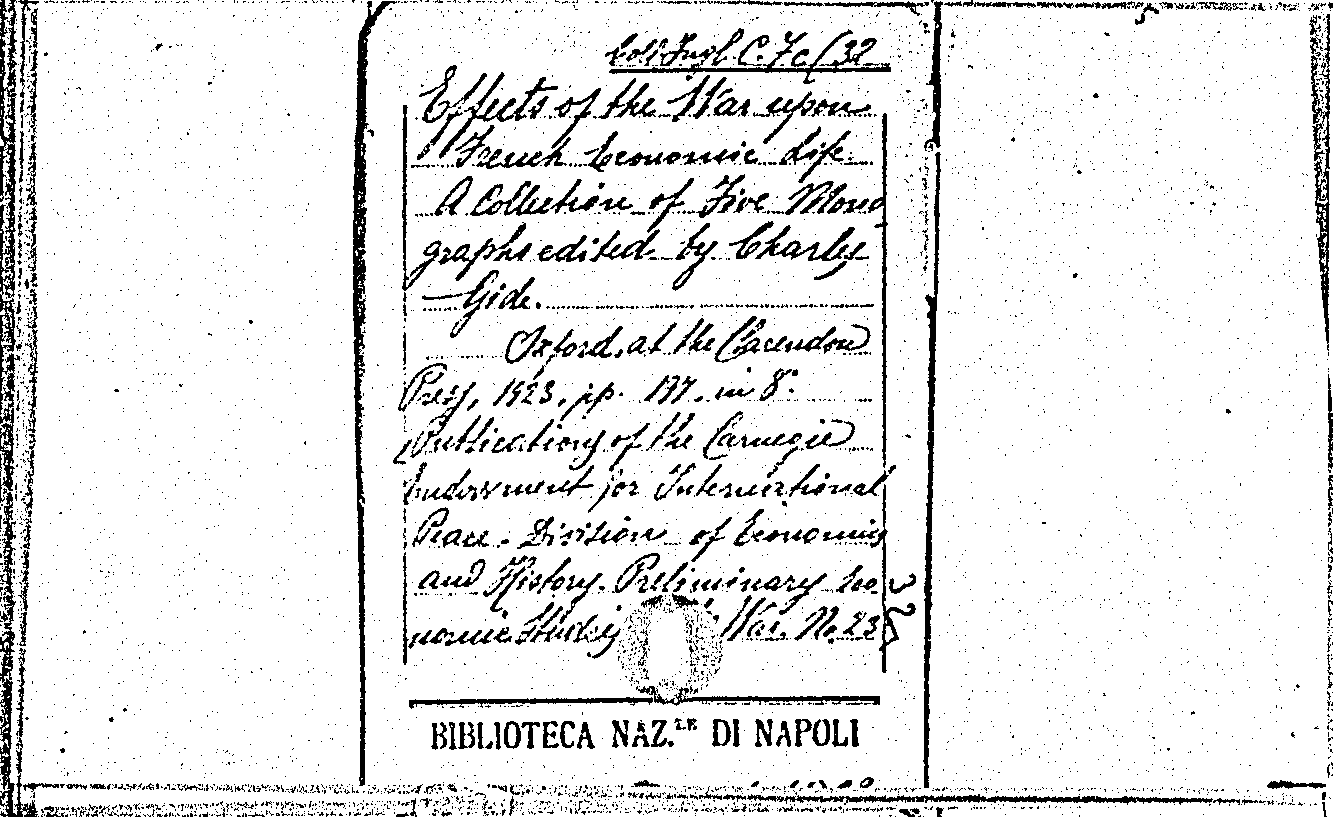 Coll. Ingl. C. 7c (32
Effects of the War upon
French Economic Life.
A Collection of Five Mono
graphs edited by Charles
Gide.
Oxford, at the Clarendon
Press, 1923, pp. 197. in 8°.
(Publications of the Carnegie
Endowment for International
Peace. Division of Economics
and History. Preliminary Eco
nomic Studies War. N. 23)
BIBLIOTECA NAZ.LE DI NAPOLI